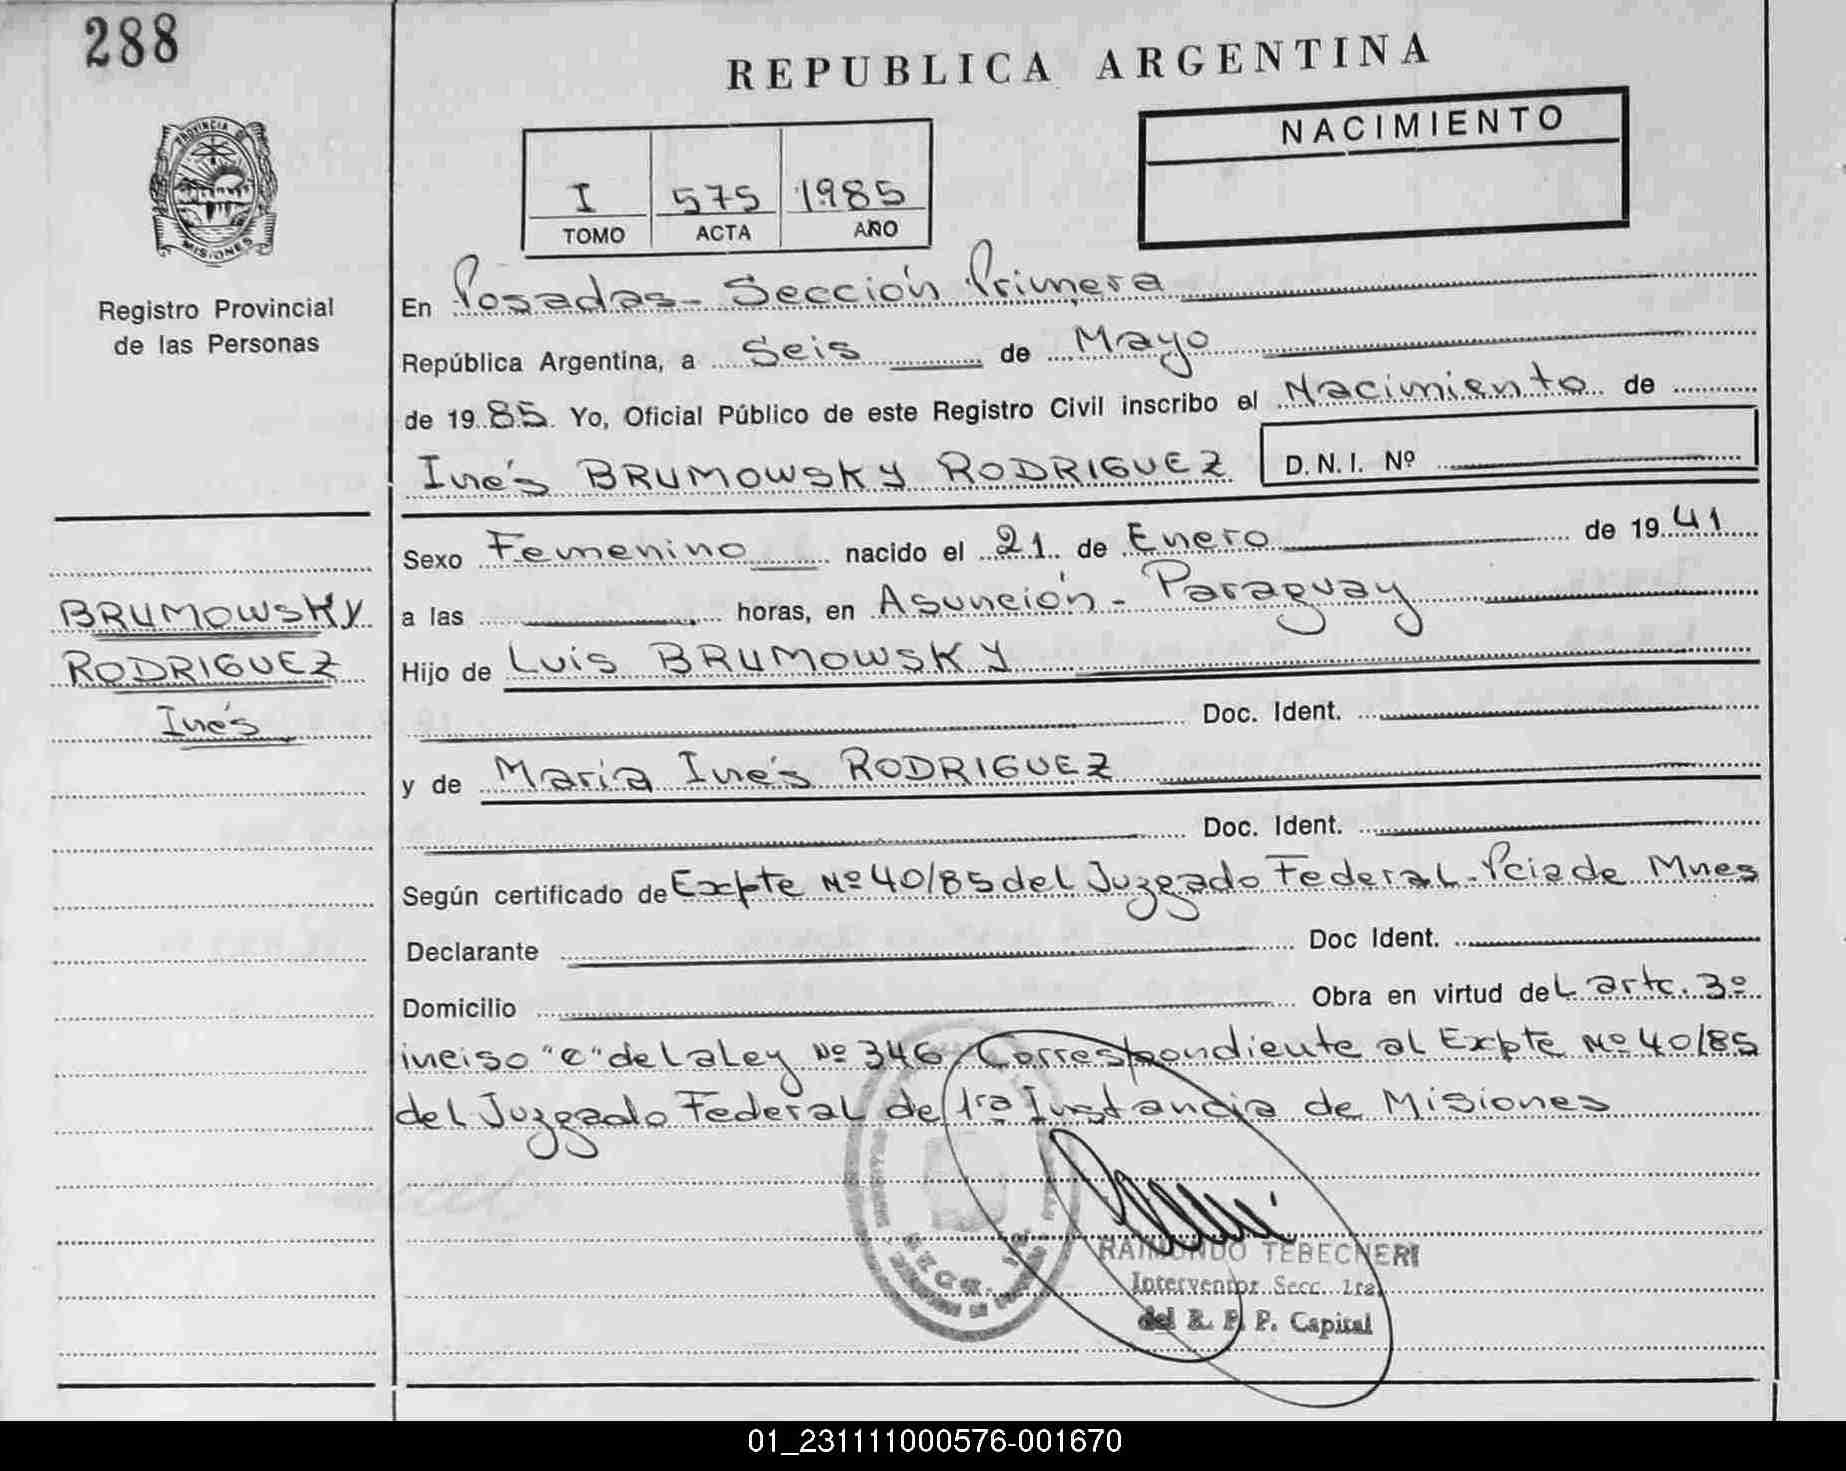 288
REPUBLICA ARGENTINA
NACIMIENTO
I 575 1985
TOMO ACTA AÑO
PROVINCIA DE
MISIONES
Registro Provincial
de las Personas
En Posadas - Sección Primera
República Argentina, a Seis de Mayo
de 1985 Yo, Oficial Público de este Registro Civil inscribo el Nacimiento de
Inés BRUMOWSKY RODRIGUEZ D.N.I. Nº
Sexo Femenino nacido el 21 de Enero de 1941
a las horas, en Asunción - Paraguay
Hijo de Luis BRUMOWSKY
Doc. Ident.
y de María Inés RODRIGUEZ
Doc. Ident.
Según certificado de Expte Nº 40/85 del Juzgado Federal - Pcia de Mnes
Declarante Doc Ident.
Domicilio Obra en virtud del artc. 3º
inciso "c" de la Ley Nº 346 Correspondiente al Expte Nº 40/85
del Juzgado Federal de 1ra Instancia de Misiones
BRUMOWSKY
RODRIGUEZ
Inés
SECC. 1a
RAIMUNDO TEBECHERI
Interventor Secc. 1ra.
del R. P. P. Capital
01_231111000576-001670